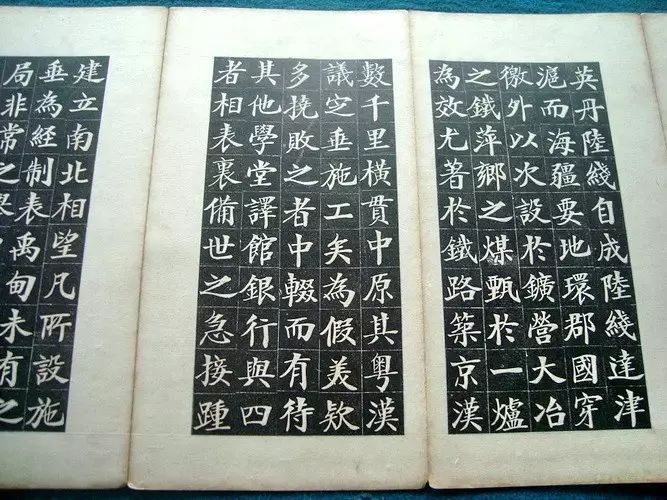 英丹陸綫自成陸綫達津
滬而海疆要地環郡國穿
徼外以次設於鑛營大冶
之鐵萍鄉之煤甄於一爐
為效尤著於鐵路築京漢
數千里橫貫中原其粵漢
議定垂施工矣為假美欵
多撓敗之者中輟而有待
其他學堂譯館銀行與四
者相表裏俻世之急接踵
建立南北相望凡所設施
垂為經制表禹甸未有之
局非常之